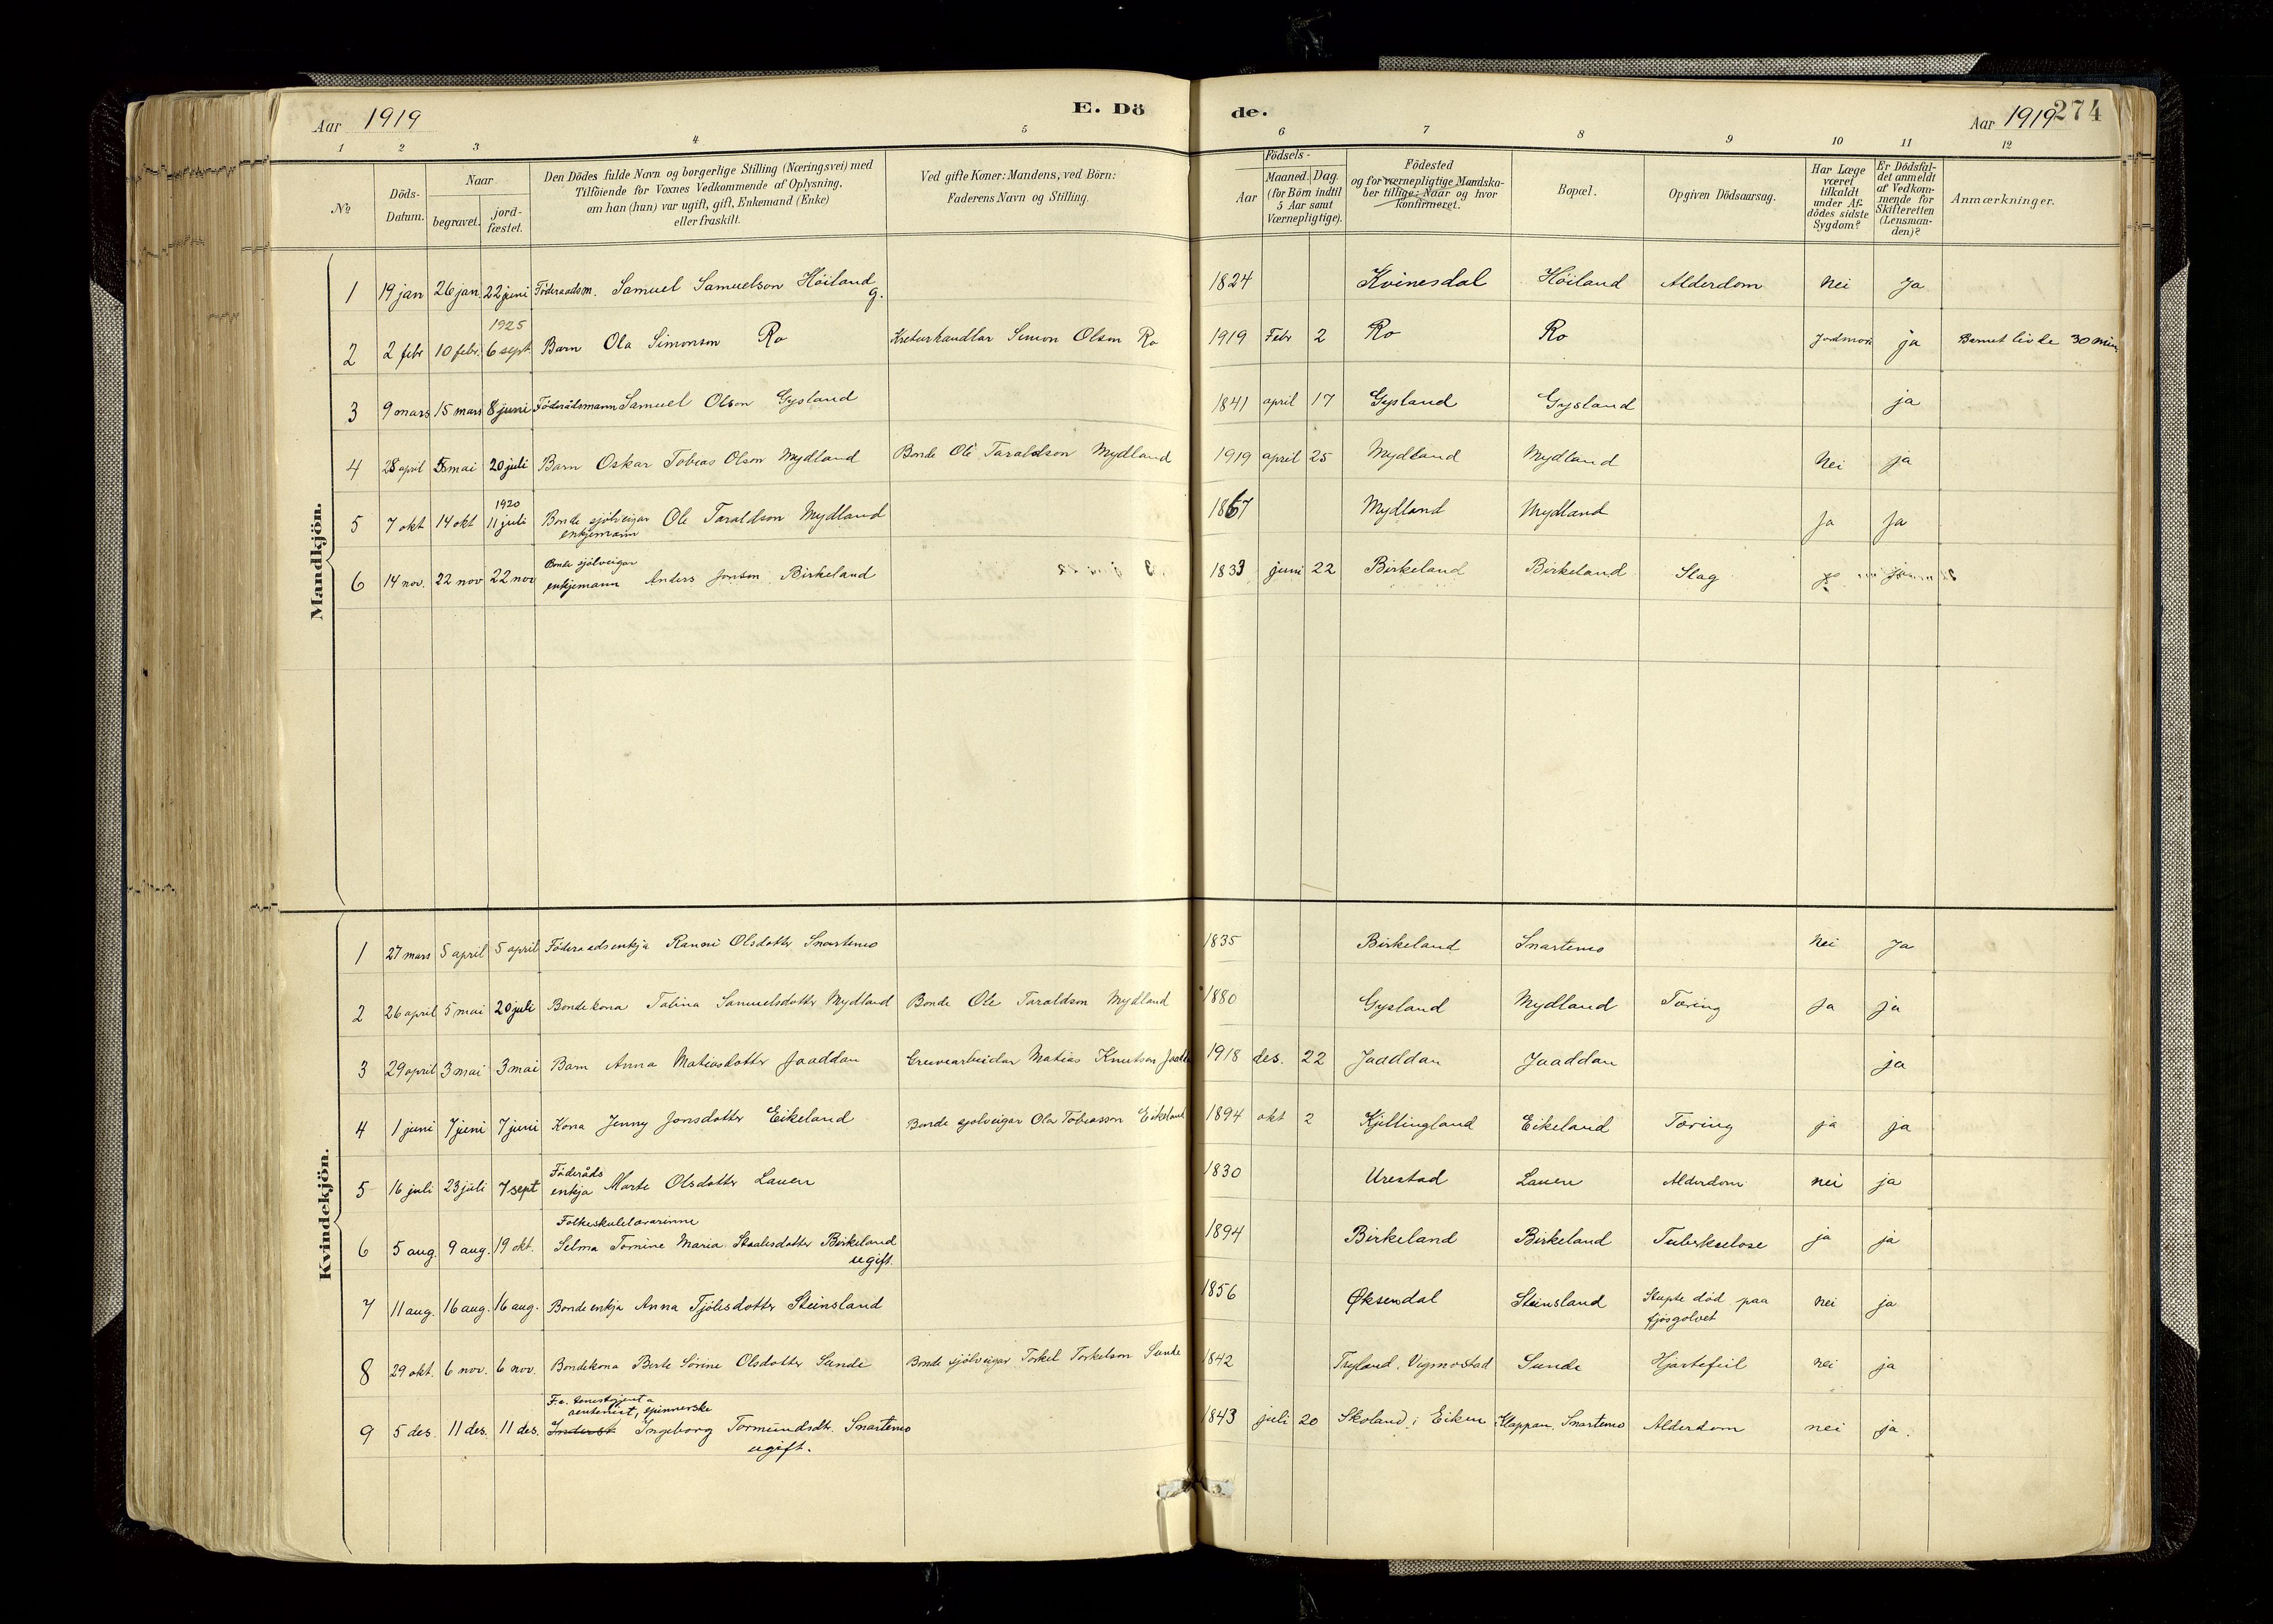 Aar 1919
E. Dö de.
Aar 1919 274
1 2 3 4 5 6 7 8 9 10 11 12
№
Döds-Datum.
Naar
begravet.
jord-fæstet.
Den Dödes fulde Navn og borgerlige Stilling (Næringsvei) med
Tilföiende for Voxnes Vedkommende af Oplysning,
om han (hun) var ugift, gift, Enkemand (Enke)
eller fraskilt.
Ved gifte Koner: Mandens, ved Börn:
Faderens Navn og Stilling.
Födsels-
Aar
Maaned. Dag.
(for Börn indtil
5 Aar samt
Værnepligtige).
Födested
og for værnepligtige Mandska-
ber tillige: Naar og hvor
konfirmeret.
Bopæl.
Opgiven Dödsaarsag.
Har Læge
været
tilkaldt
under Af-
dödes sidste
Sygdom?
Er Dödsfal-
det anmeldt
af Vedkom-
mende for
Skifteretten
(Lensman-
den)?
Anmærkninger.
Mandkjön.
1 19 jan 26 jan. 22 juni Föderaadsm. Samuel Samuelson Höiland g. 1824 Kvinesdal Höiland Alderdom Nei Ja
1925
2 2 febr 10 febr. 6 sept. Barn Ola Simonson Ro Kreturhandlar Simon Olson Ro 1919 Febr 2 Ro Ro Jordmor ja Barnet livde 30 min.
3 9 mars 15 mars 8 juni Föderådsmann Samuel Olson Gysland 1841 april 17 Gysland Gysland ja
4 28 april 5 mai 20 juli Barn Oskar Tobias Olson Mydland Bonde Ole Taraldson Mydland 1919 april 25 Mydland Mydland Nei ja
1920
5 7 okt 14 okt 11 juli Bonde sjölveigar Ole Taraldson Mydland 1867 Mydland Mydland Ja Ja
enkjemann
Bonde sjölveigar
6 14 nov. 22 nov 22 nov enkjemann Anders Jonson Birkeland 1833 juni 22 Birkeland Birkeland Slag
Kvindekjön.
1 27 mars 5 april 5 april Föderaadsenkja Ranni Olsdotter Snartemo 1835 Birkeland Snartemo Nei Ja
2 26 april 5 mai 20 juli Bondekona Talina Samuelsdotter Mydland Bonde Ole Taraldson Mydland 1880 Gysland Mydland Tæring Ja ja
3 29 april 3 mai 3 mai Barn Anna Matiasdotter Jaaddan Gruvearbeidar Matias Knutson 1918 des. 22 Jaaddan Jaaddan ja
4 1 juni 7 juni 7 juni Kona Jenny Jonsdotter Eikeland Bonde sjolveigar Ola Tobiasson Eikeland 1894 okt 2 Kjellingland Eikeland Tæring ja ja
Föderåds
5 16 juli 23 juli 7 sept enkja Marte Olsdotter Lauen 1830 Urestad Lauen Alderdom nei ja
Folkeskulelærarinne
6 5 aug. 9 aug. 19 okt. Selma Tomine Maria Staalesdotter Birkeland 1894 Birkeland Birkeland Tuberkulose ja ja
ugift.
7 11 aug. 16 aug. 16 aug. Bondeenkja Anna Tjölesdotter Steinsland 1856 Øksendal Steinsland Stupte död paa nei ja
fjösgolvet
8 29 okt. 6 nov. 6 nov. Bondekona Berte Sörine Olsdotter Sunde Bonde sjölveigar Torkel Torkelson Sunde 1842 Tryland, Vigmostad Sunde Hjartefeil nei ja
F.v. tenestejenta
spinnerske
9 5 des. 11 des. 11 des. Inderst Ingeborg Tormundsdt. Snartemo 1843 juli 20 Skoland i Eiken Klappan, Snartemo Alderdom nei ja.
ugift.